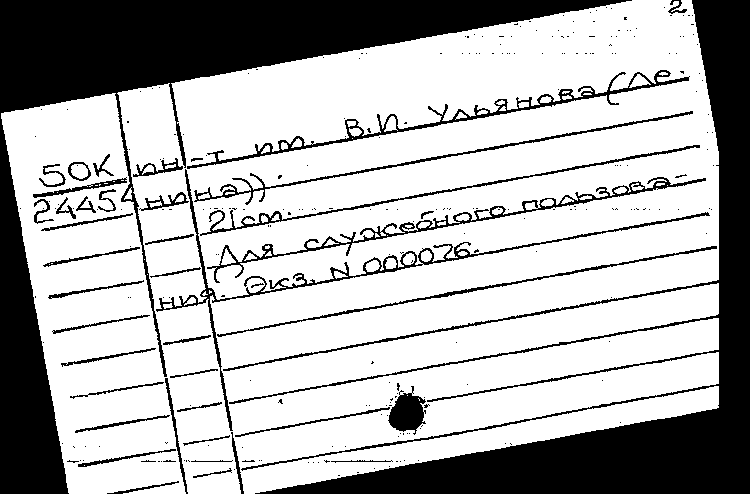 2
50К ин-т им. В.И. Ульянова (Ле-
24454 нина)).
21cm.
Для служебного пользова-
ния. Экз. N 000026.